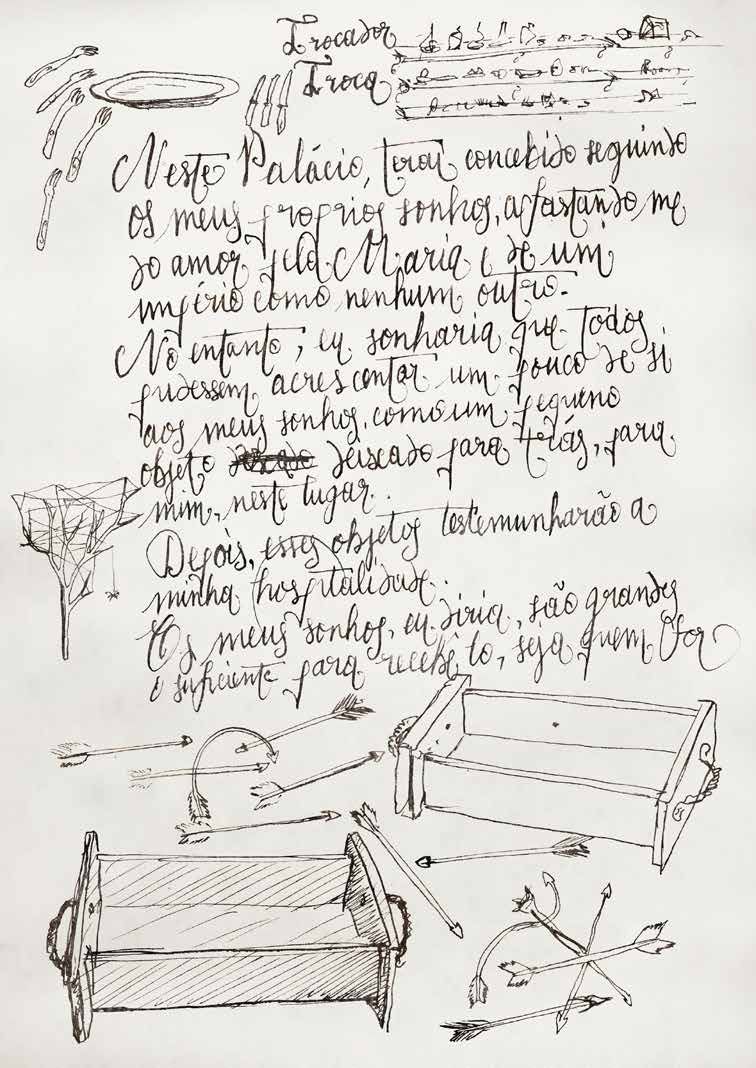 Trocador
Troca
Neste Palácio, terei concebido seguindo
os meus proprios sonhos, afastando me
do amor pela Maria e de um
império como nenhum outro.
No entanto, eu sonharia que todos
pudessem acrescentar um pouco de si
aos meus sonhos, como um pequeno
objeto deixado para trás, para
mim, neste lugar.
Depois, esses objetos testemunharão a
minha hospitalidade.
Os meus sonhos, eu diria, são grandes
o suficiente para recebê lo, seja quem for